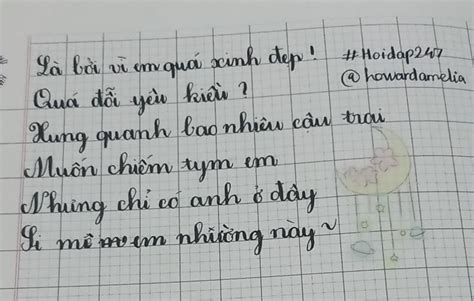 Là bởi vì em quá xinh đẹp! #Hoidap247
Quá đỗi yêu kiều? @howardamelia
Xung quanh bao nhiêu câu trai
Muốn chiếm tym em
Nhưng chỉ có anh ở đây
Si mê em nhường này~